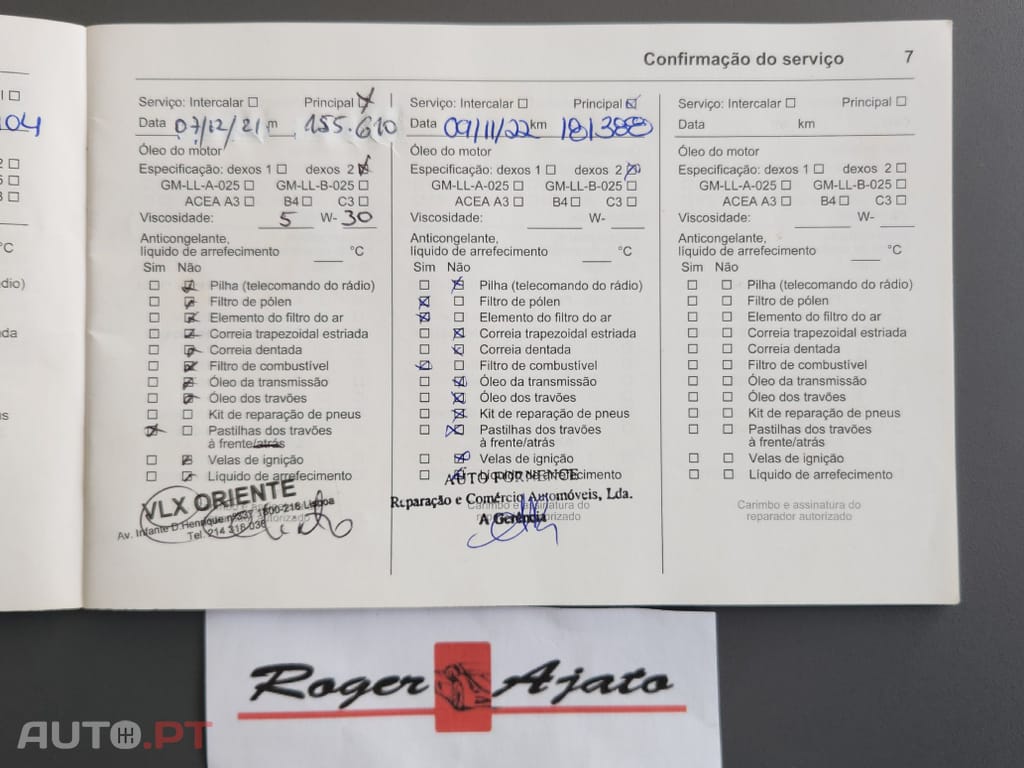 Confirmação do serviço 7
Serviço: Intercalar Principal
Data 07/12/21 m 155.610
Óleo do motor
Especificação: dexos 1 dexos 2
GM-LL-A-025 GM-LL-B-025
ACEA A3 B4 C3
Viscosidade: 5 W- 30
Anticongelante,
líquido de arrefecimento °C
Sim Não
Pilha (telecomando do rádio)
Filtro de pólen
Elemento do filtro do ar
Correia trapezoidal estriada
Correia dentada
Filtro de combustível
Óleo da transmissão
Óleo dos travões
Kit de reparação de pneus
Pastilhas dos travões
à frente/atrás
Velas de ignição
Líquido de arrefecimento
VLX ORIENTE
Av. Infante D. Henrique nº 337 1800-218 Lisboa
Tel. 214 316 036
Serviço: Intercalar Principal
Data 09/11/22 km 181.388
Óleo do motor
Especificação: dexos 1 dexos 2
GM-LL-A-025 GM-LL-B-025
ACEA A3 B4 C3
Viscosidade: W-
Anticongelante,
líquido de arrefecimento °C
Sim Não
Pilha (telecomando do rádio)
Filtro de pólen
Elemento do filtro do ar
Correia trapezoidal estriada
Correia dentada
Filtro de combustível
Óleo da transmissão
Óleo dos travões
Kit de reparação de pneus
Pastilhas dos travões
à frente/atrás
Velas de ignição
Líquido de arrefecimento
AUTO FORNENCE
Reparação e Comércio Automóveis, Lda.
Carimbo e assinatura do
reparador autorizado
A Gerência
Serviço: Intercalar Principal
Data km
Óleo do motor
Especificação: dexos 1 dexos 2
GM-LL-A-025 GM-LL-B-025
ACEA A3 B4 C3
Viscosidade: W-
Anticongelante,
líquido de arrefecimento °C
Sim Não
Pilha (telecomando do rádio)
Filtro de pólen
Elemento do filtro do ar
Correia trapezoidal estriada
Correia dentada
Filtro de combustível
Óleo da transmissão
Óleo dos travões
Kit de reparação de pneus
Pastilhas dos travões
à frente/atrás
Velas de ignição
Líquido de arrefecimento
Carimbo e assinatura do
reparador autorizado
Roger Ajato
AUTO.PT